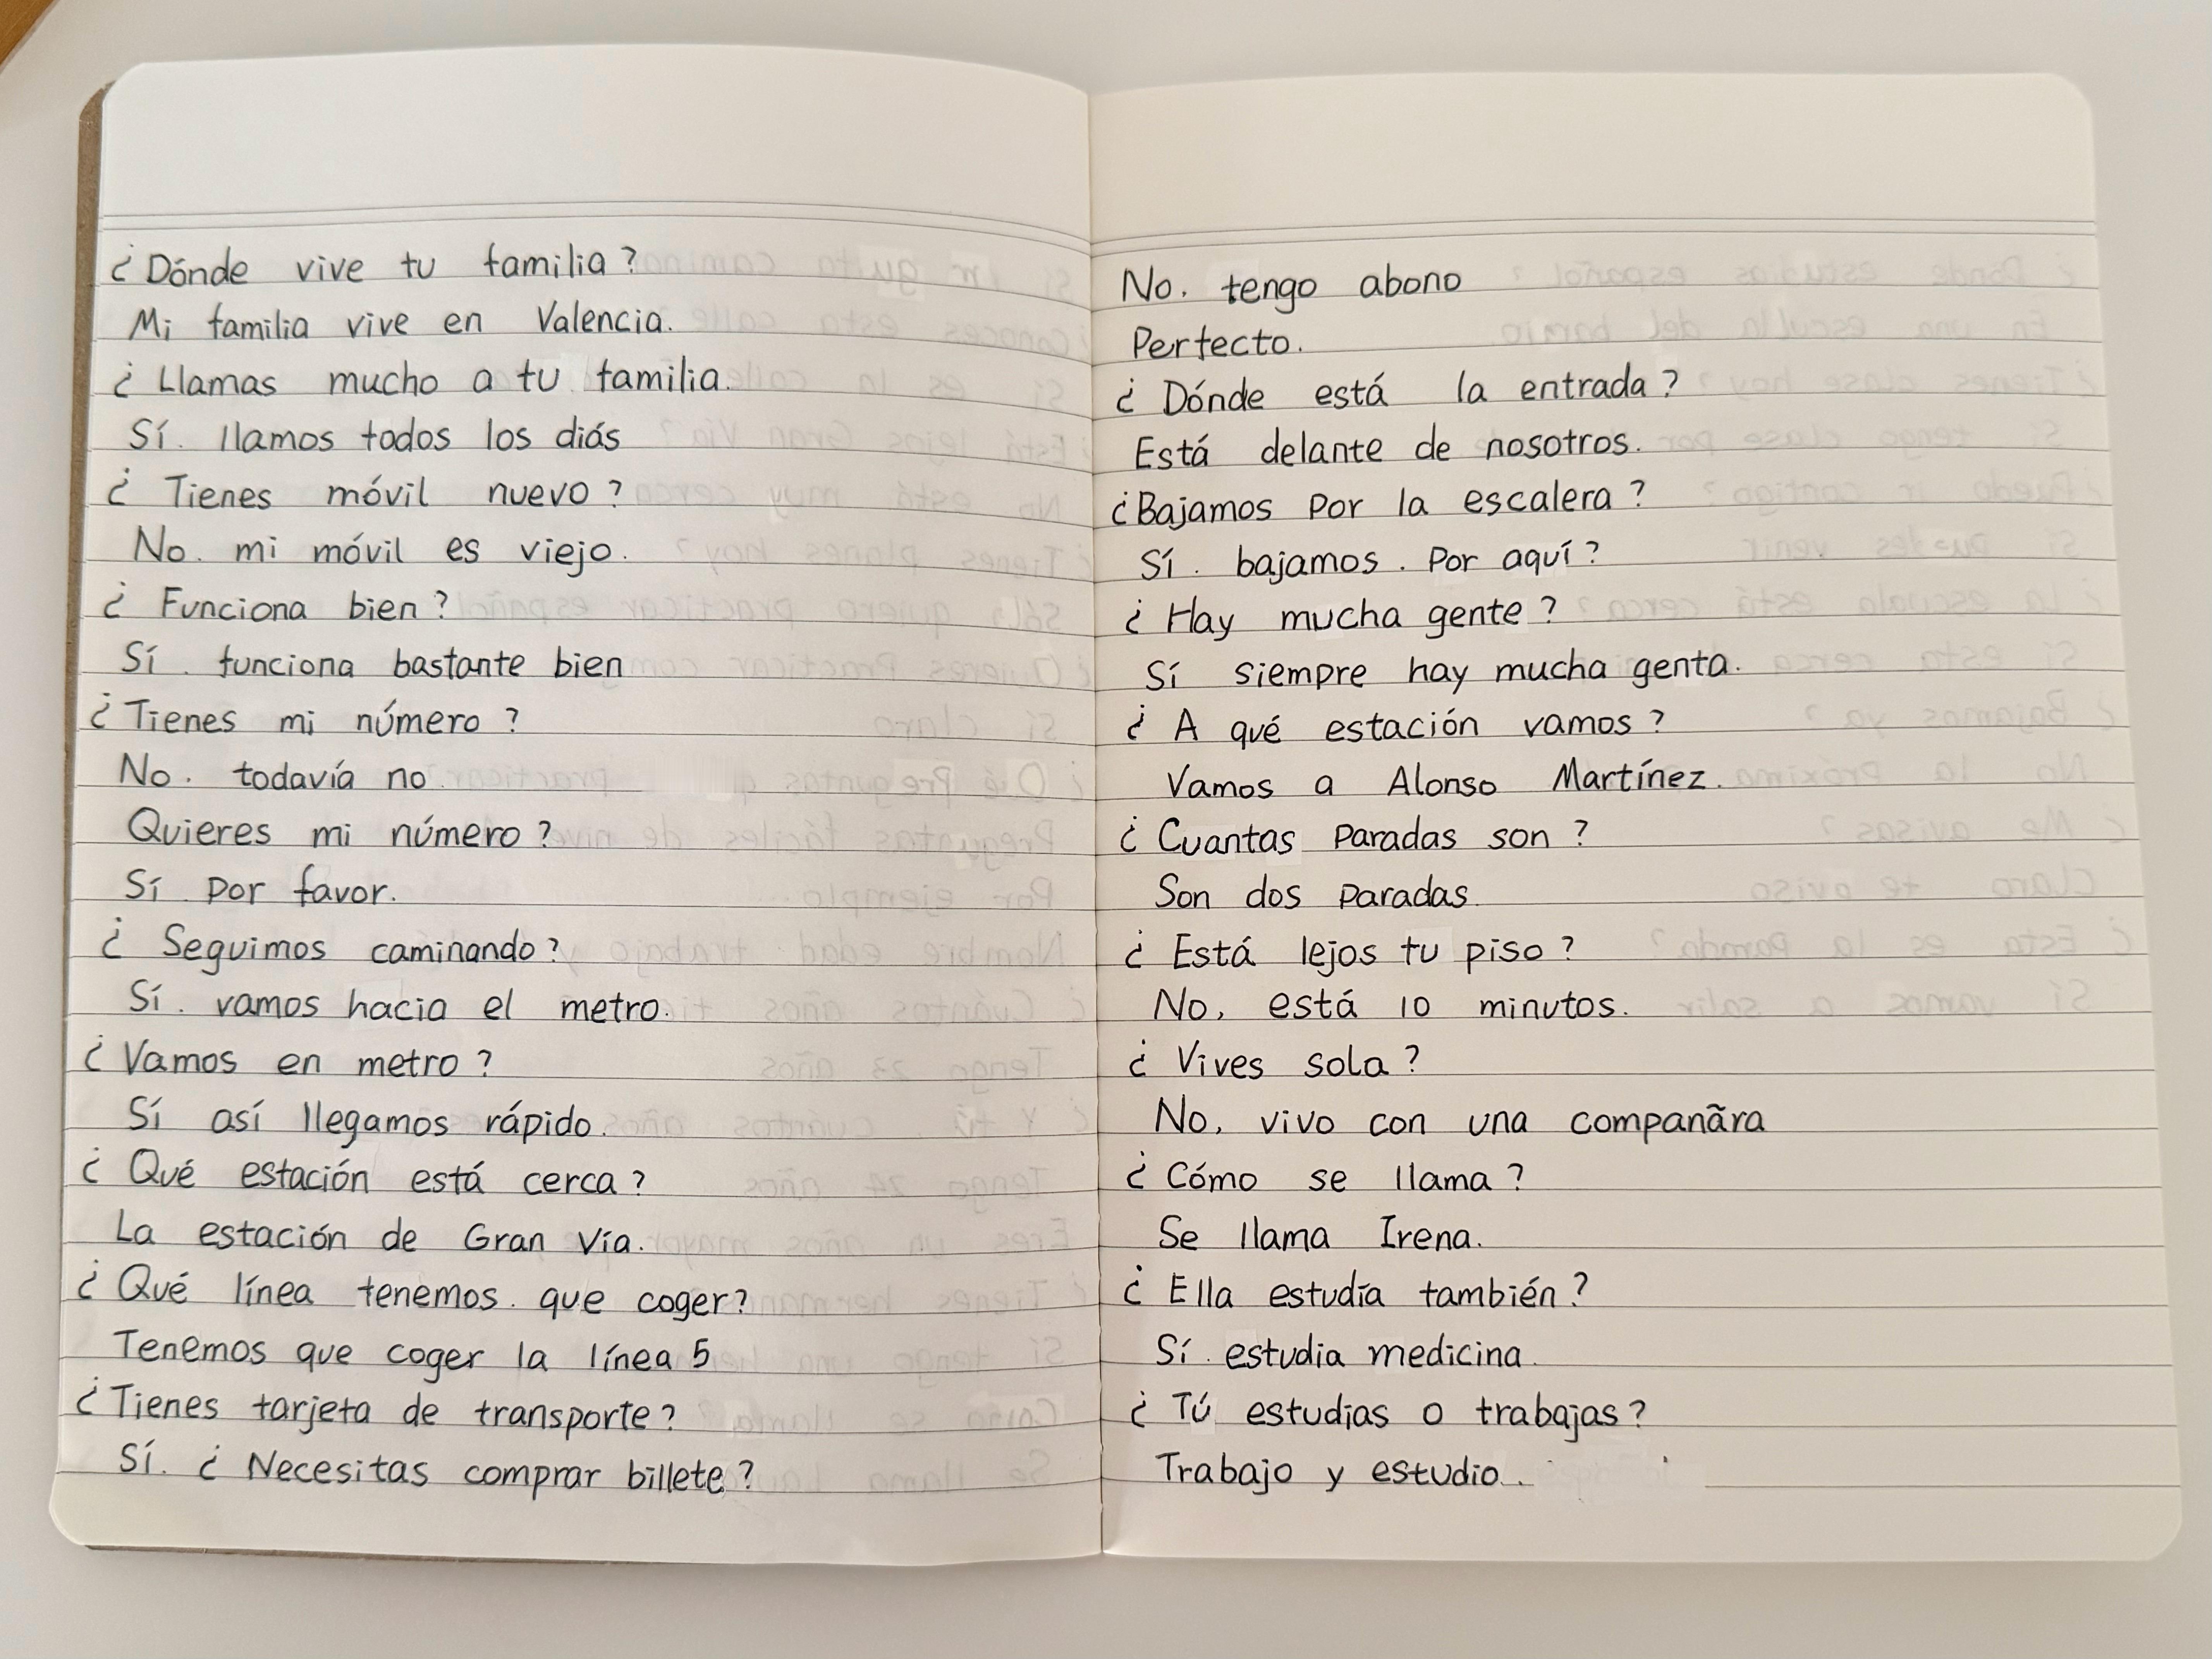 ¿Dónde vive tu familia?
Mi familia vive en Valencia.
¿Llamas mucho a tu familia.
Sí. llamos todos los diás
¿Tienes móvil nuevo?
No. mi móvil es viejo.
¿Funciona bien?
Sí. funciona bastante bien
¿Tienes mi número?
No. todavía no
Quieres mi número?
Sí por favor.
¿Seguimos caminando?
Sí. vamos hacia el metro.
¿Vamos en metro?
Sí así llegamos rápido.
¿Qué estación está cerca?
La estación de Gran Vía.
¿Qué línea tenemos. que coger?
Tenemos que coger la línea 5
¿Tienes tarjeta de transporte?
Sí. ¿Necesitas comprar billete?
No. tengo abono
Perfecto.
¿Dónde está la entrada?
Está delante de nosotros.
¿Bajamos por la escalera?
Sí. bajamos. Por aquí?
¿Hay mucha gente?
Sí siempre hay mucha genta.
¿A qué estación vamos?
Vamos a Alonso Martínez.
¿Cuantas paradas son?
Son dos paradas.
¿Está lejos tu piso?
No, está 10 minutos.
¿Vives sola?
No, vivo con una companãra
¿Cómo se llama?
Se llama Irena.
¿Ella estudía también?
Sí. estudia medicina.
¿Tú estudias o trabajas?
Trabajo y estudio.